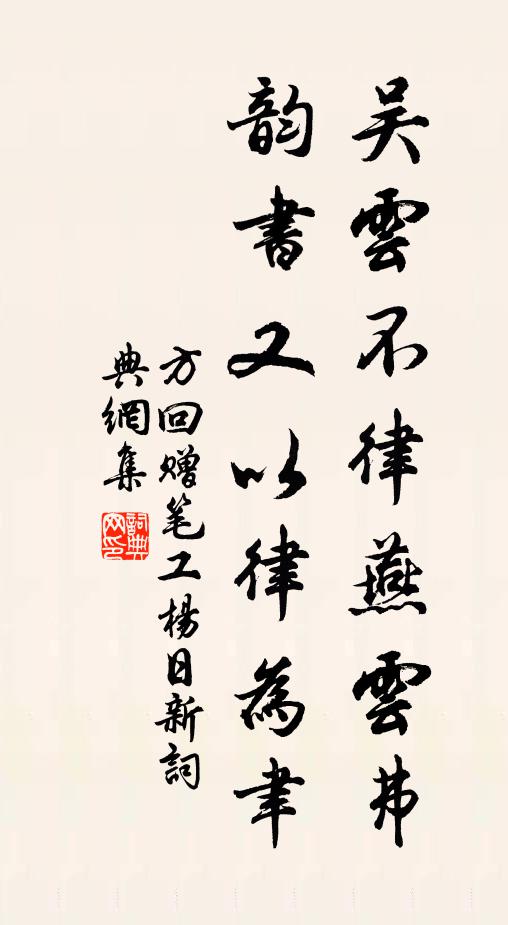 吴雲不律燕雲弗
韵書又以律為聿
方回赠笔工楊日新詞
典網集
詞典網印